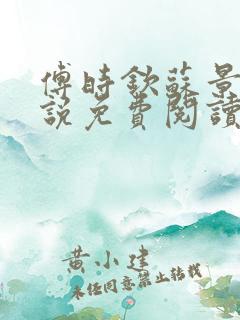 傅時欽蘇景
說免費閱讀
黃小建
未經同意禁止轉載